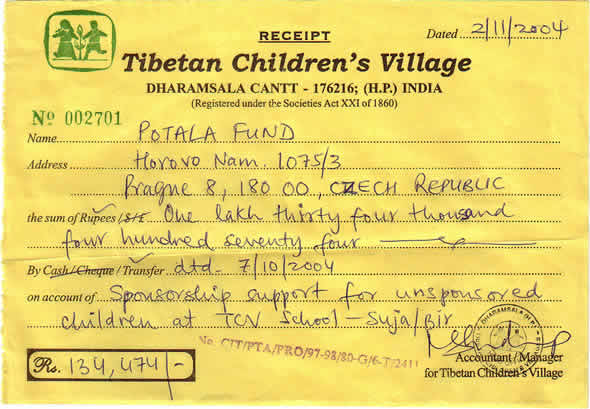 RECEIPT
Dated 2/11/2004
Tibetan Children's Village
DHARAMSALA CANTT - 176216; (H.P.) INDIA
(Registered under the Societies Act XXI of 1860)
No 002701
Name POTALA FUND
Address Horovo Nam. 1075/3
Prague 8, 180 00, CZECH REPUBLIC
the sum of Rupees/$/£ One lakh thirty four thousand
four hundred seventy four
By Cash/Cheque/Transfer dtd- 7/10/2004
on account of Sponsorship support for unsponsored
children at TCV School - Suja/Bir
No. CIT/PTA/PRO/97-98/80-G/6-T/2411
Rs. 134,474/-
Accountant/Manager
for Tibetan Children's Village